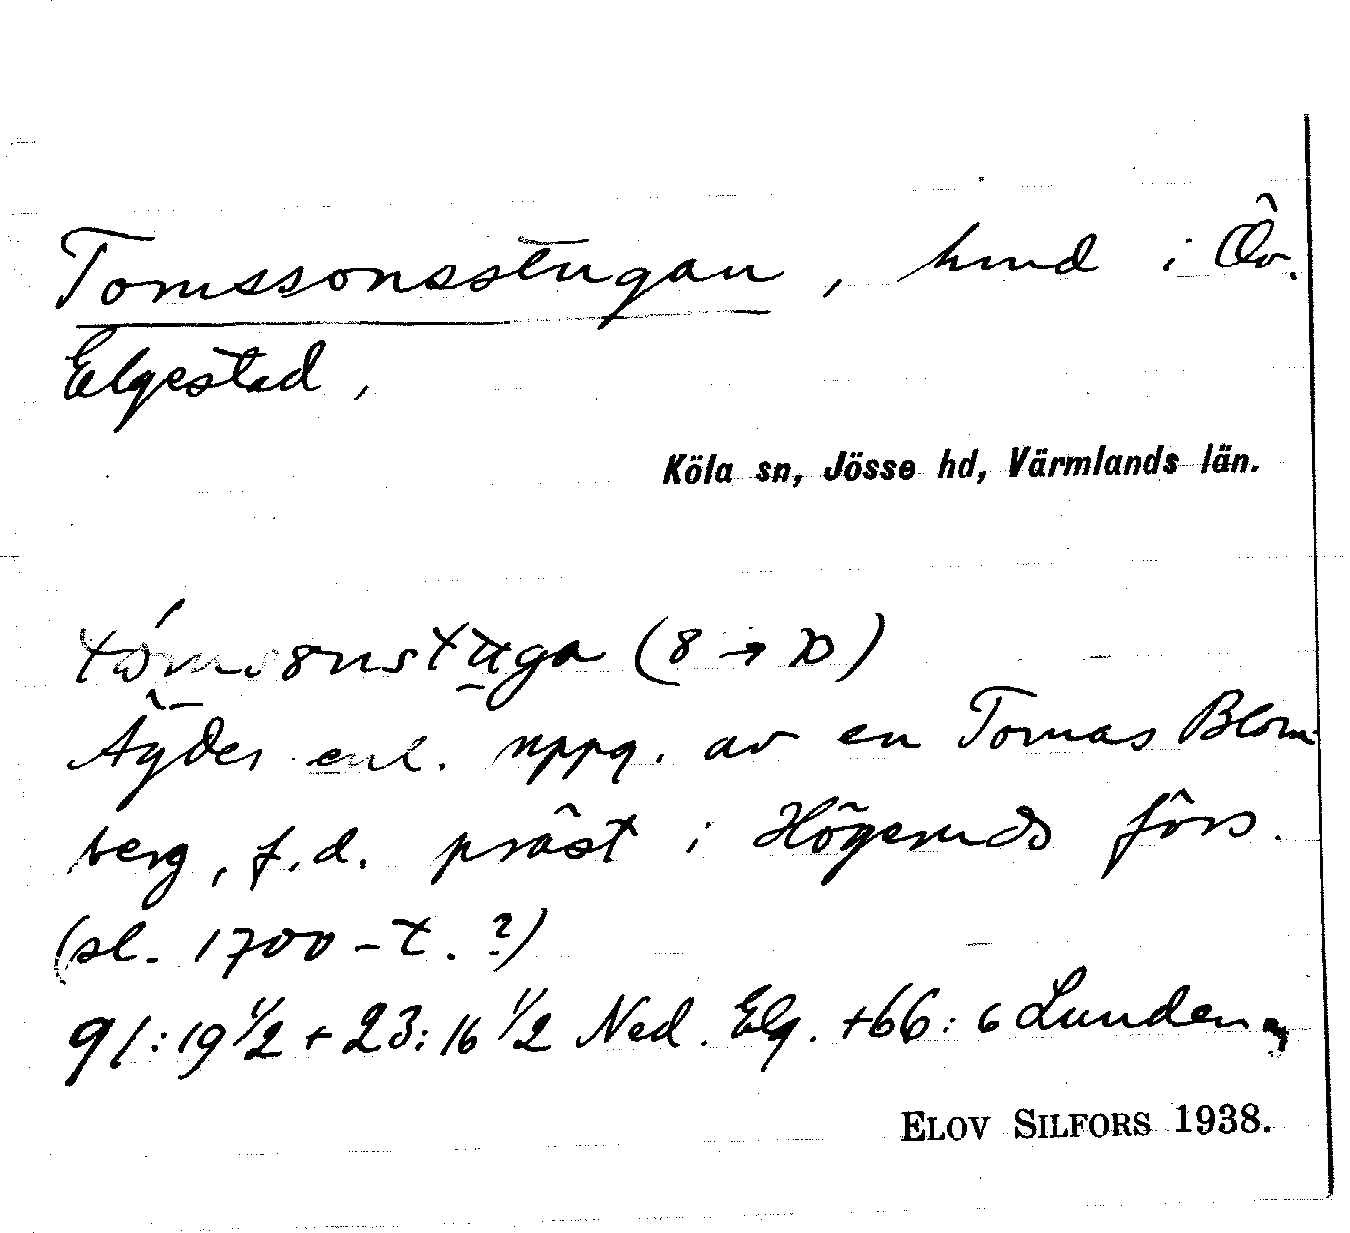 Tomssonsstugan, hmd i Öv.
Elgestad,
Köla sn, Jösse hd, Värmlands län.
(8 → )
Äydes enl. uppg. av en Tomas Blom-
berg, f.d. präst i Högeruds förs.
(sl. 1700-t. ?)
91:19 1/2 + 23:16 1/2 Ned. Elg. +66:6 Lunden
ELOV SILFORS 1938.